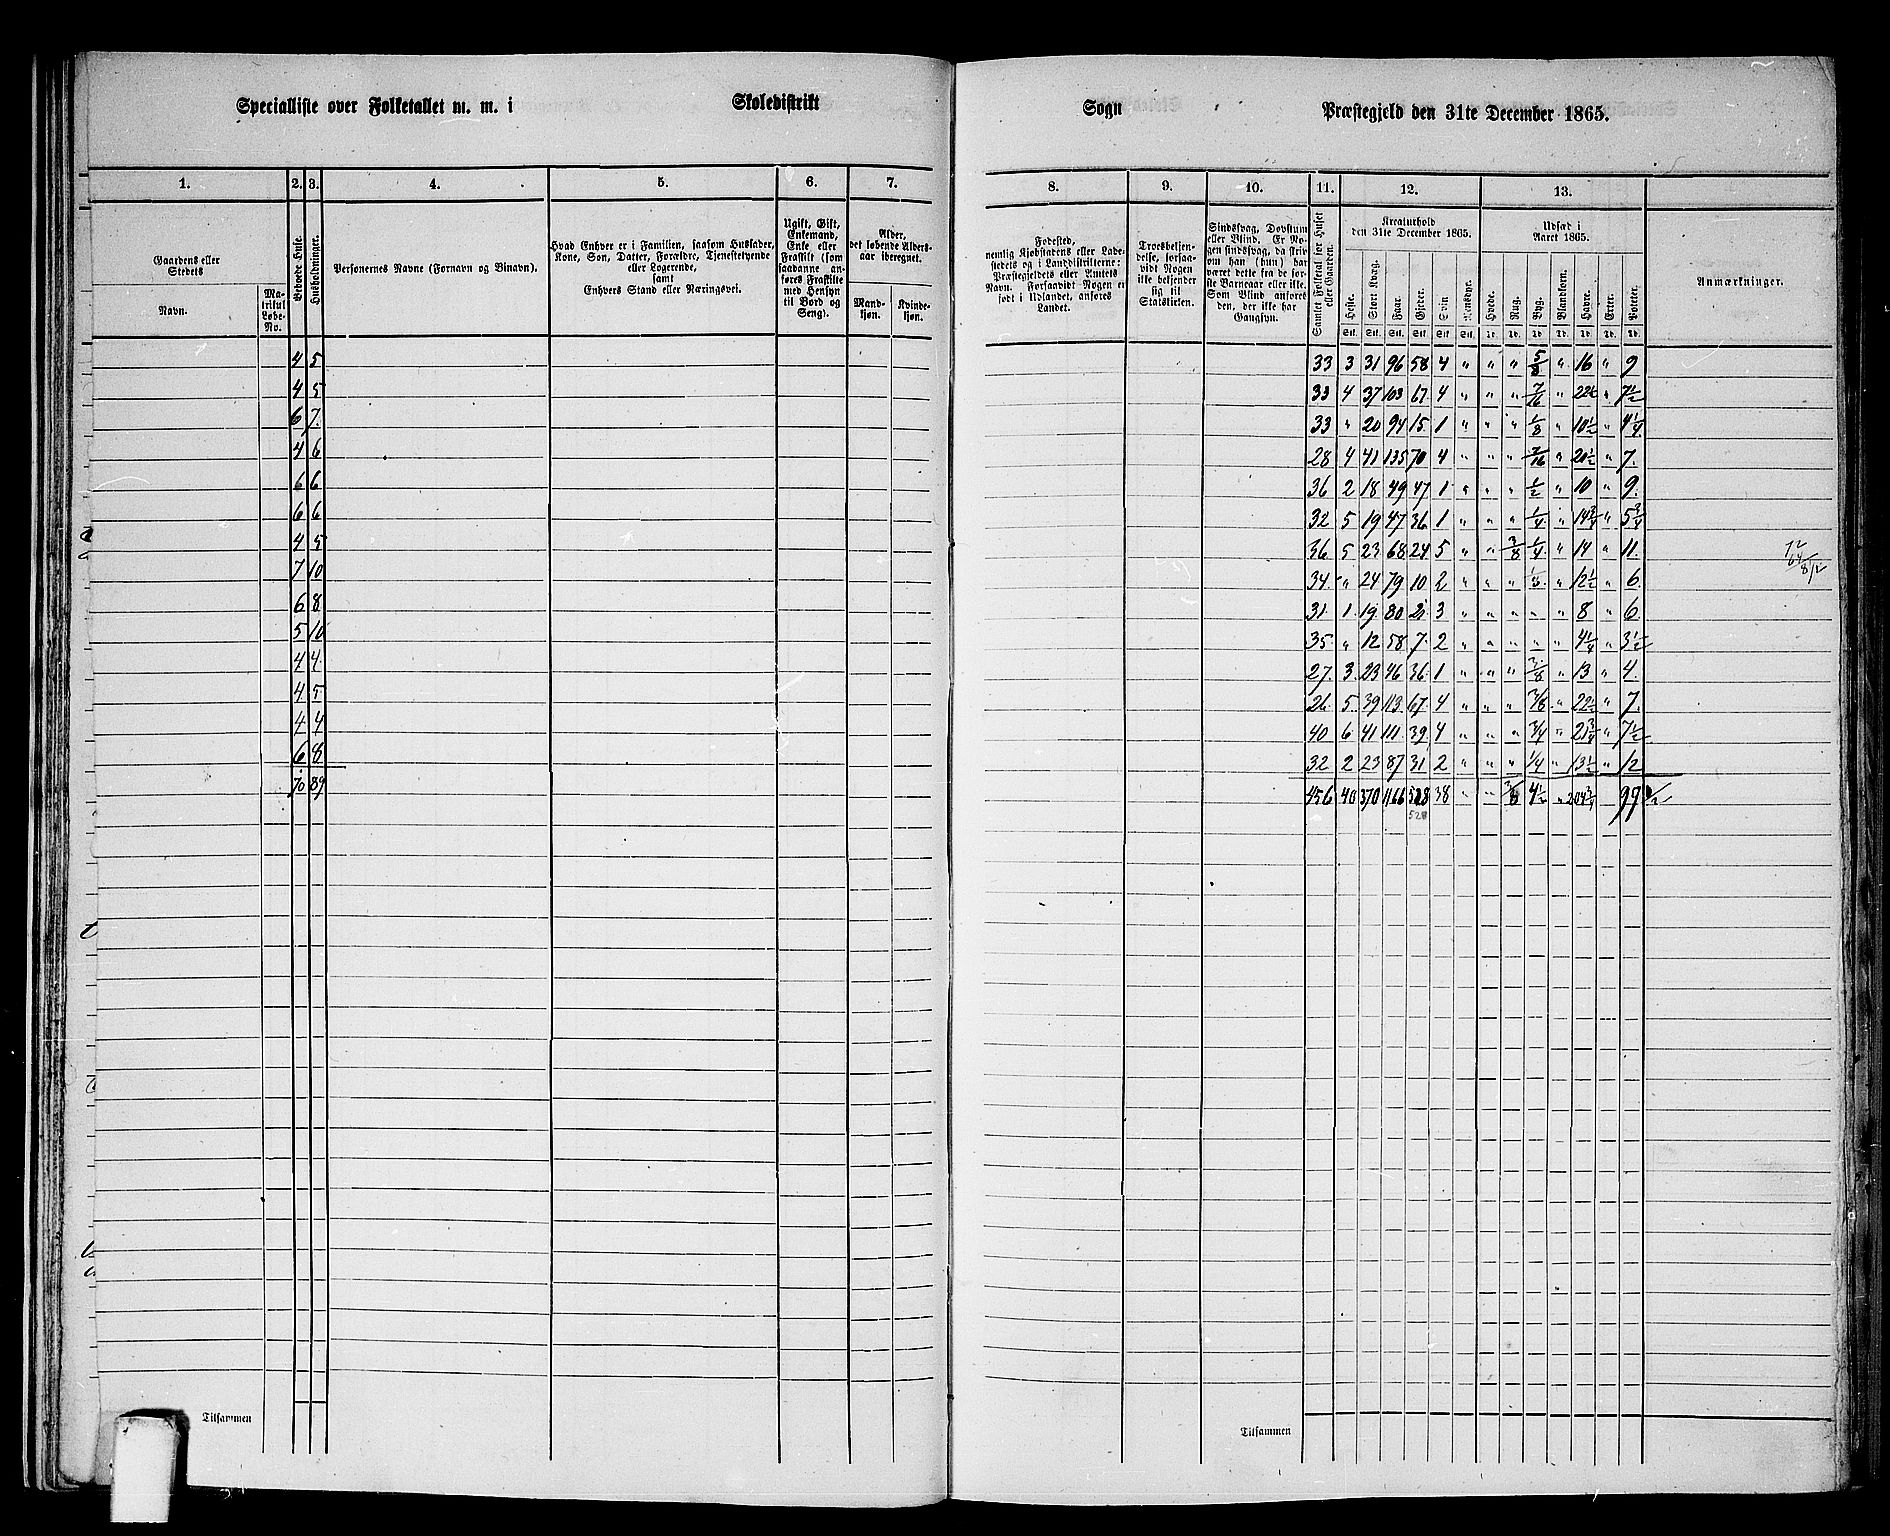 Specialliste over Folketallet m. m. i Skoledistrikt Sogn Præstegjeld den 31te December 1865.
1. 2. 3. 4. 5. 6. 7. 8. 9. 10. 11. 12. 13.
Gaardens eller Stedets
Navn.
Matrikul Løbe-No.
Beboede Huse.
Husholdninger.
Personernes Navne (Fornavn og Binavn).
Hvad Enhver er i Familien, saasom Husfader, Kone, Søn, Datter, Forældre, Tjenestetyende eller Logerende,
samt
Enhvers Stand eller Næringsvei.
Ugift, Gift, Enkemand, Enke eller Fraskilt (som saadanne anføres Fraskilte med Hensyn til Bord og Seng).
Alder, det løbende Alders-aar iberegnet.
Mand-kjøn. Kvinde-kjøn.
Fødested, nemlig Kjøbstadens eller Ladestedets og i Landdistrikterne: Præstegjeldets eller Amtets Navn. Forsaavidt Nogen er født i Udlandet, anføres Landet.
Troesbekjendelse, forsaavidt Nogen ikke bekjender sig til Statskirken.
Sindssvag, Døvstum eller Blind. Er Nogen sindssvag, da skrives om han (hun) har været dette fra de første Barneaar eller ikke. Som Blind anføres den, der ikke har Gangsyn.
Samlet Folketal for Huset eller Gaarden.
Kreaturhold den 31te December 1865.
Heste. Stort Kvæg. Faar. Gjeder. Svin Rensdyr.
Stk. Stk. Stk. Stk. Stk. Stk.
Udsæd i Aaret 1865.
Hvede. Rug. Byg. Blandkorn. Havre. Erter. Poteter.
Td. Td. Td Td. Td Td. Td.
Anmærkninger.
4 5 33 3 31 96 58 4 " " " 5/8 " 16 " 9
4 5 33 4 37 103 67 4 " " " 7/16 " " 7 1/2
6 7. 33 " 20 94 15 1 " " " 1/8 " 10 1/2 " 4 1/4
4 6 28 4 41 135 70 4 " " " 7/16 " 20 1/2 " 7.
6 6 36 2 18 49 47 1 " " " 1/2 " 10 " 9.
6 6 32 5 19 47 36 1 " " " 1/4 " 14 3/4 " 5 3/4
4 5 36 5 23 68 24 5 " " 3/8 1/4 " 14 " 11.
7 10 34 " 24 79 10 2 " " " 1/8 " 12 1/2 " 6.
6 8 31 1 19 80 21 3 " " " " " 8 " 6
5 10 35 " 12 58 7 2 " " " " " 4 1/4 " 3 1/2
4 4 27 3 23 46 36 1 " " " 3/8 " 13 " 4.
4 5 26 5 39 113 67 4 " " " " 22 1/2 " 7.
4 4 40 6 41 111 39 4 " " " 3/4 " 21 3/4 " 7 1/2
6 8 32 2 23 87 31 2 " " " 1/4 " 13 1/2 " 12
70 89 456 40 370 1166 528 38 " " 3/8 4 1/2 " 204 3/4 99 1/2
528
Tilsammen Tilsammen